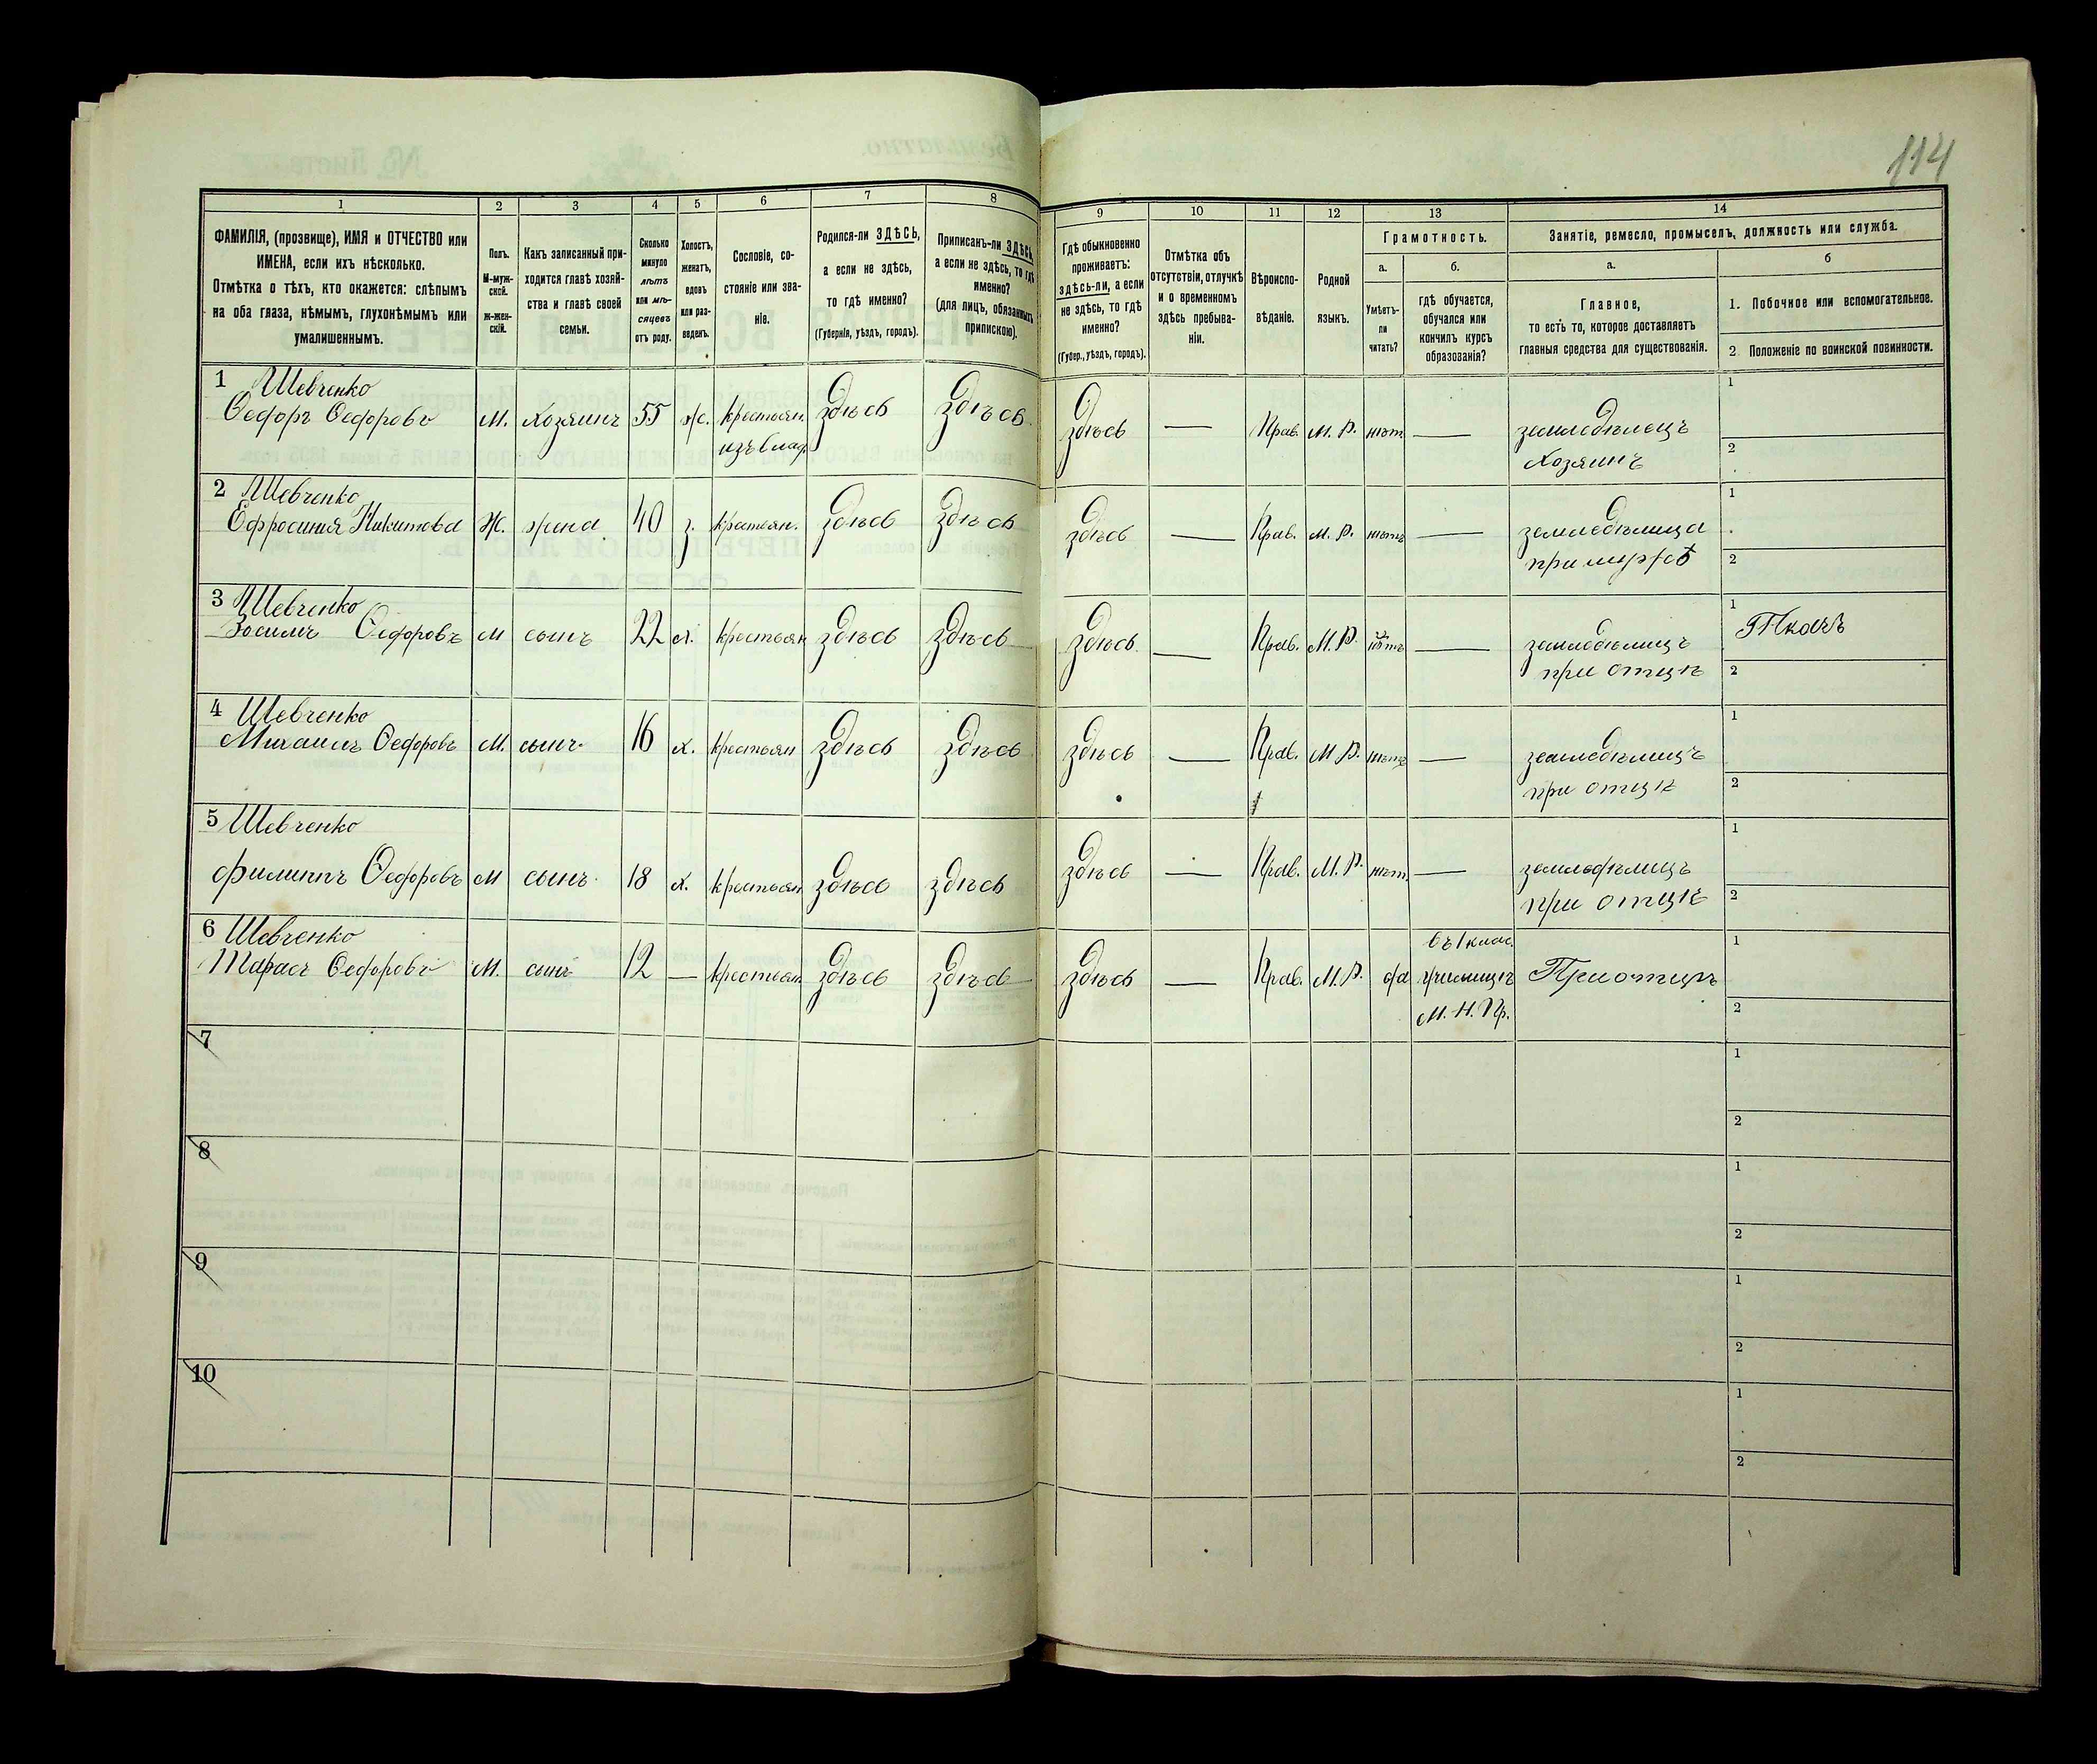 114
1 2 3 4 5 6 7 8 9 10 11 12 13 14
ФАМИЛІЯ, (прозвище), ИМЯ и ОТЧЕСТВО или
ИМЕНА, если ихъ нѣсколько.
Отмѣтка о тѣхъ, кто окажется: слѣпымъ
на оба глаза, нѣмымъ, глухонѣмымъ или
умалишеннымъ.
Полъ.
М-муж-
ской.
Ж-жен-
скій.
Какъ записанный при-
ходится главѣ хозяй-
ства и главѣ своей
семьи.
Сколько
минуло
лѣтъ
или мѣ-
сяцевъ
отъ роду.
Холостъ,
женатъ,
вдовъ
или раз-
веденъ.
Сословіе, со-
стояніе или зва-
ніе.
Родился-ли ЗДѢСЬ,
а если не здѣсь,
то гдѣ именно?
(Губернія, уѣздъ, городъ).
Приписанъ-ли ЗДѢСЬ,
а если не здѣсь, то гдѣ
именно?
(для лицъ, обязанныхъ
припискою).
Гдѣ обыкновенно
проживаетъ:
здѣсь-ли, а если
не здѣсь, то гдѣ
именно?
(Губер., уѣздъ, городъ).
Отмѣтка объ
отсутствіи, отлучкѣ
и о временномъ
здѣсь пребыва-
ніи.
Вѣроиспо-
вѣданіе.
Родной
языкъ.
Грамотность.
а.
Умѣетъ-
ли
читать?
б.
гдѣ обучается,
обучался или
кончилъ курсъ
образованія?
Занятіе, ремесло, промыселъ, должность или служба.
а.
Главное,
то есть то, которое доставляетъ
главныя средства для существованія.
б
1. Побочное или вспомогательное.
2 Положеніе по воинской повинности.
1 Шевченко
Ѳедоръ Ѳедоровъ М. Хозяинъ 55 ж. крестьян. здѣсь здѣсь здѣсь — Прав. М. Р. нѣт — земледѣлецъ 1
изъ влад. Хозяинъ 2
2 Шевченко
Ефросинія Никитова Ж. жена 40 з. крестьян. здѣсь здѣсь здѣсь — Прав. М. Р. нѣтъ — земледѣлица 1
при 2
3 Шевченко
Ѳедоровъ М сынъ 22 х. крестьян здѣсь здѣсь здѣсь — Прав. М. Р. нѣтъ — земледѣлицъ 1 Ткачъ
при отцѣ 2
4 Шевченко
Михаилъ Ѳедоровъ М. сынъ 16 х. крестьян здѣсь здѣсь здѣсь — Прав. М. Р. нѣтъ — земледѣлицъ 1
при отцѣ 2
5 Шевченко
Филиппъ Ѳедоровъ М сынъ 18 х. крестьян здѣсь здѣсь здѣсь — Прав. М. Р. нѣт. — земледѣлицъ 1
при отцѣ 2
6 Шевченко въ 1 клас.
Тарасъ Ѳедоровъ М. сынъ 12 — крестьян здѣсь здѣсь здѣсь — Прав. М. Р. да училищѣ При отцѣ 1
М. Н. Пр. 2
7 1
2
8 1
2
9 1
2
10 1
2